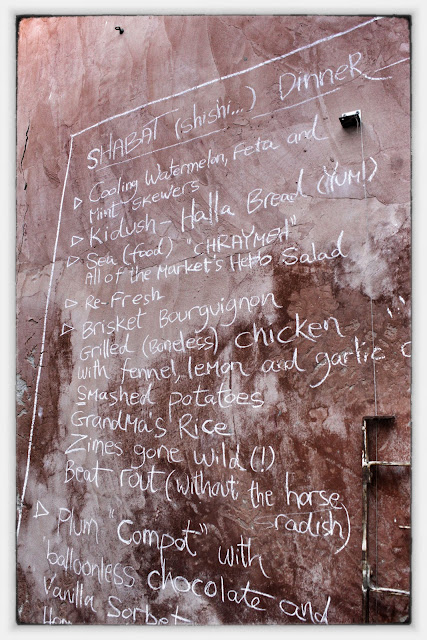 SHABAT (shishi...) Dinner
Cooling Watermelon, Feta and
Mint Skewers
Kidush - Halla Bread (Yum!)
Sea (food) "CHRAYMEH"
All of the Market's Herb Salad
Re-Fresh
Brisket Bourguignon
Grilled (Boneless) chicken
with fennel, lemon and garlic
Smashed potatoes
Grandma's Rice
Zimes gone wild (!)
Beat rout (without the horse
-radish)
Plum "Compot" with
balloonless chocolate and
Vanilla Sorbet